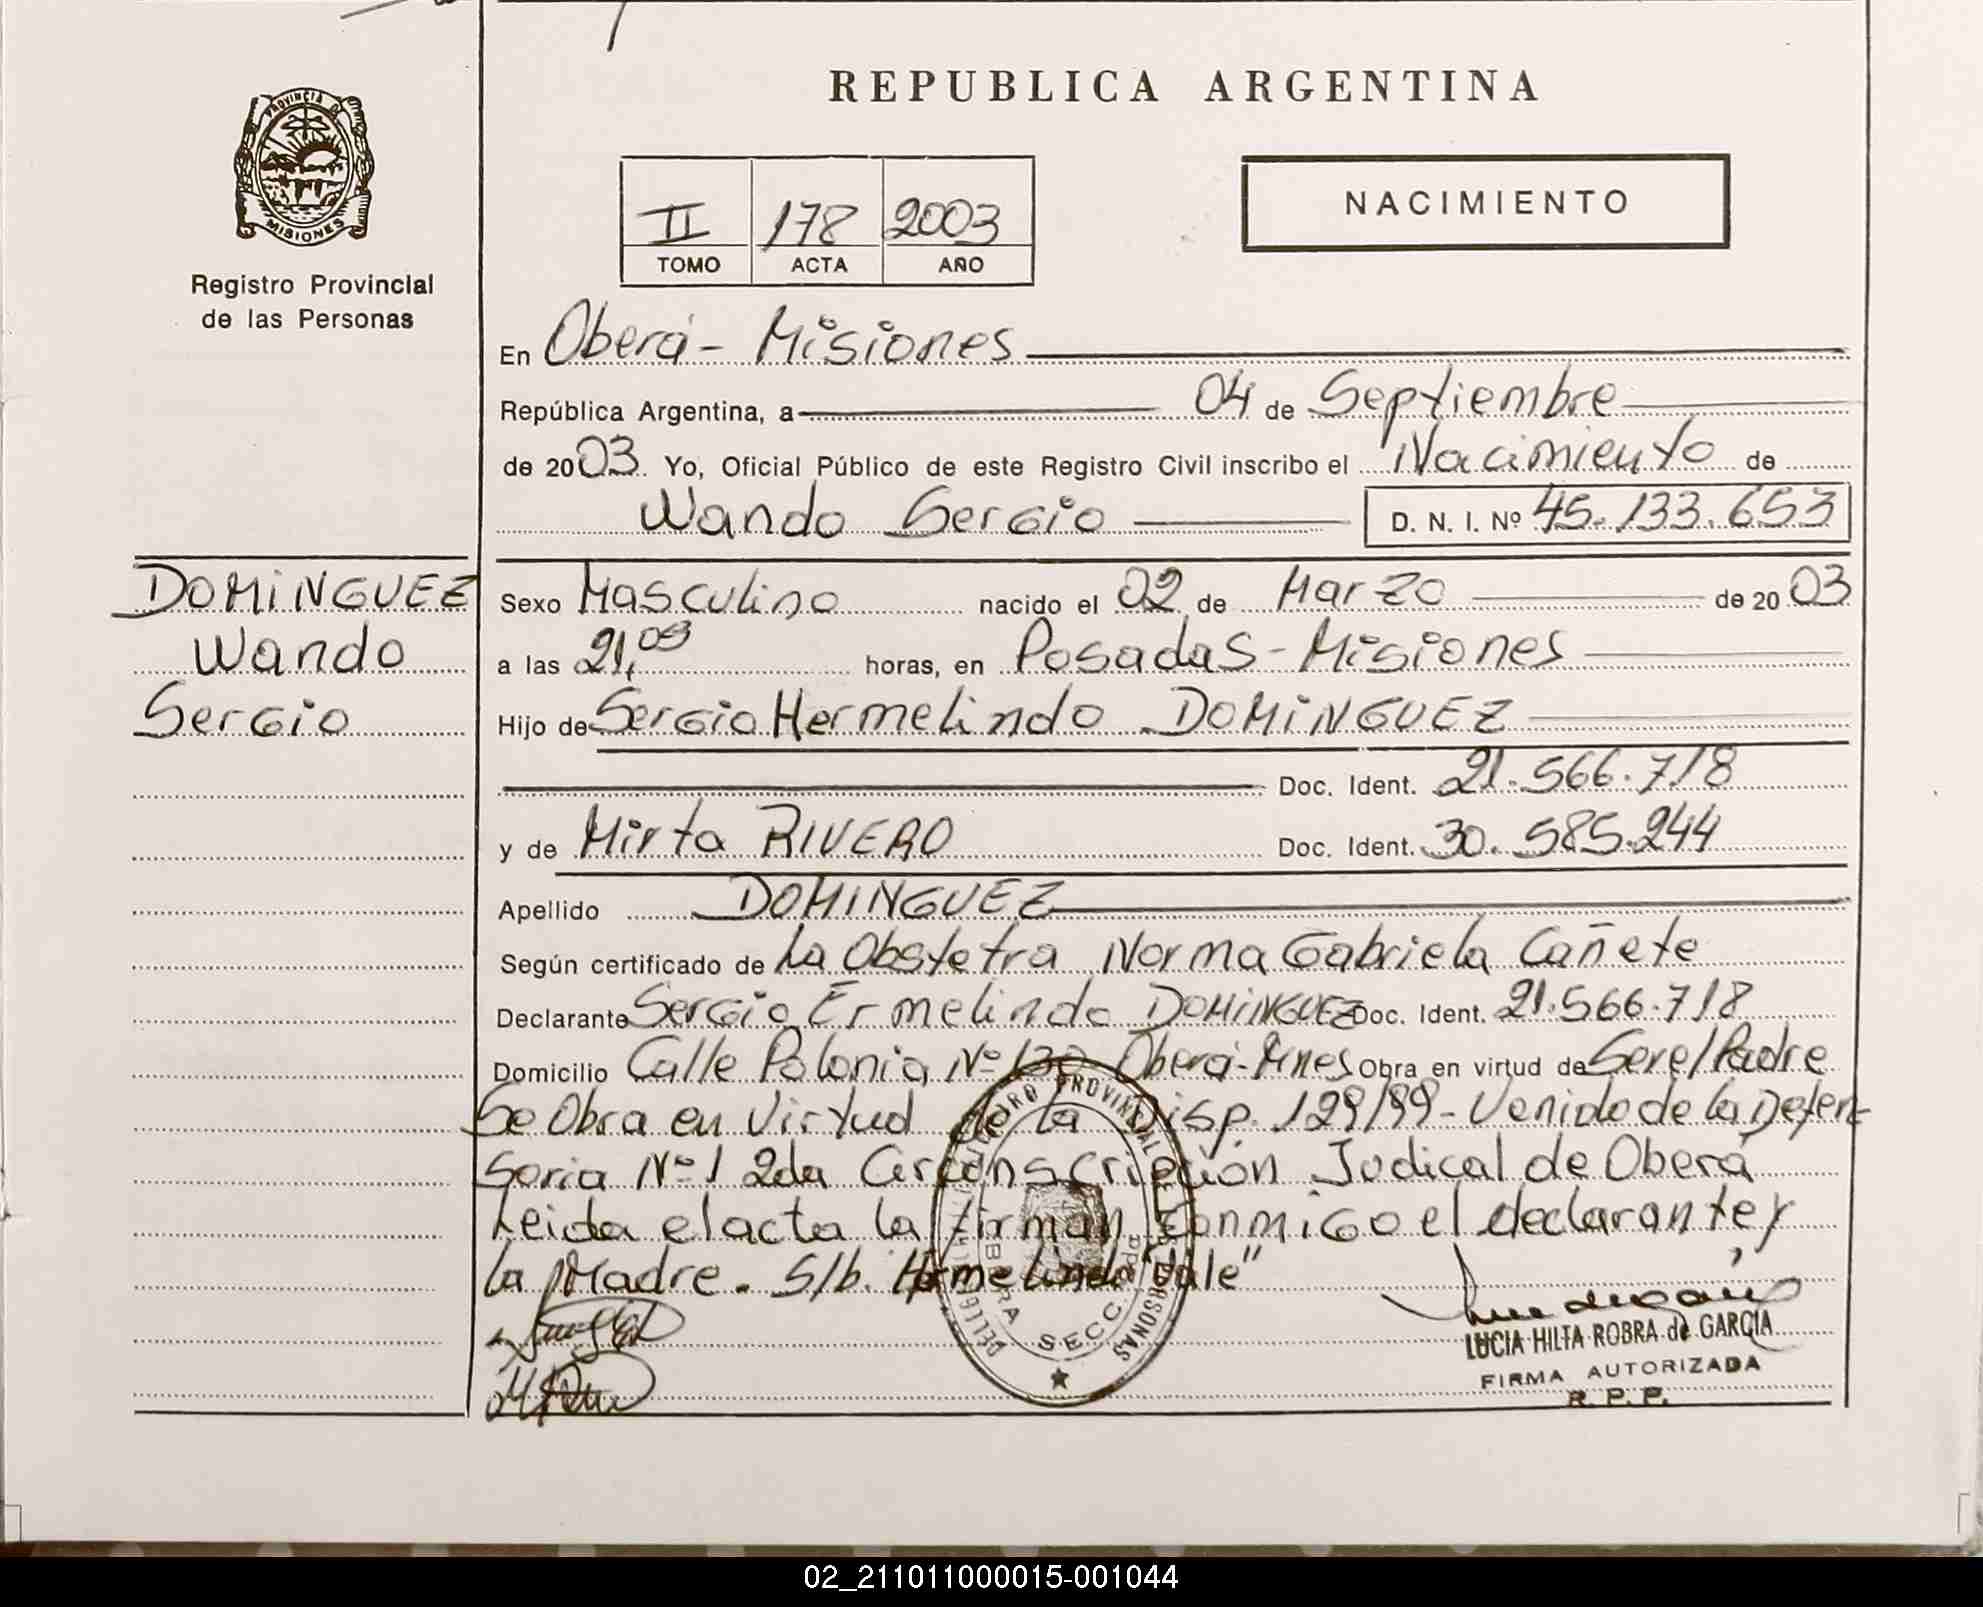 REPUBLICA ARGENTINA
PROVINCIA DE
MISIONES
Registro Provincial
de las Personas
II 178 2003
TOMO ACTA AÑO
NACIMIENTO
En Oberá - Misiones
República Argentina, a 04 de Septiembre
de 2003. Yo, Oficial Público de este Registro Civil inscribo el Nacimiento de
Wando Sergio D. N. I. Nº 45.133.653
DOMINGUEZ
Wando
Sergio
Sexo Masculino nacido el 02 de Marzo de 2003
a las 21,09 horas, en Posadas - Misiones
Hijo de Sergio Hermelindo DOMINGUEZ
Doc. Ident. 21.566.718
y de Mirta RIVERO Doc. Ident. 30.585.244
Apellido DOMINGUEZ
Según certificado de La Obstetra Norma Gabriela Cañete
Declarante Sergio Ermelindo DOMINGUEZ Doc. Ident. 21.566.718
Domicilio Calle Polonia Nº 130 Oberá - Mnes Obra en virtud de Ser el Padre
Se Obra en Virtud de la Disp. 129/99 - Venido de la Defen-
soria Nº 1 2da Circonscripción Judical de Oberá
Leida el acta la firman conmigo el declarante y
la Madre. S/b. Hermelindo "Vale"
REGISTRO PROVINCIAL DE LAS PERSONAS
OBERA SECC.
LUCIA HILTA ROBRA de GARCIA
FIRMA AUTORIZADA
R. P. P.
02_211011000015-001044